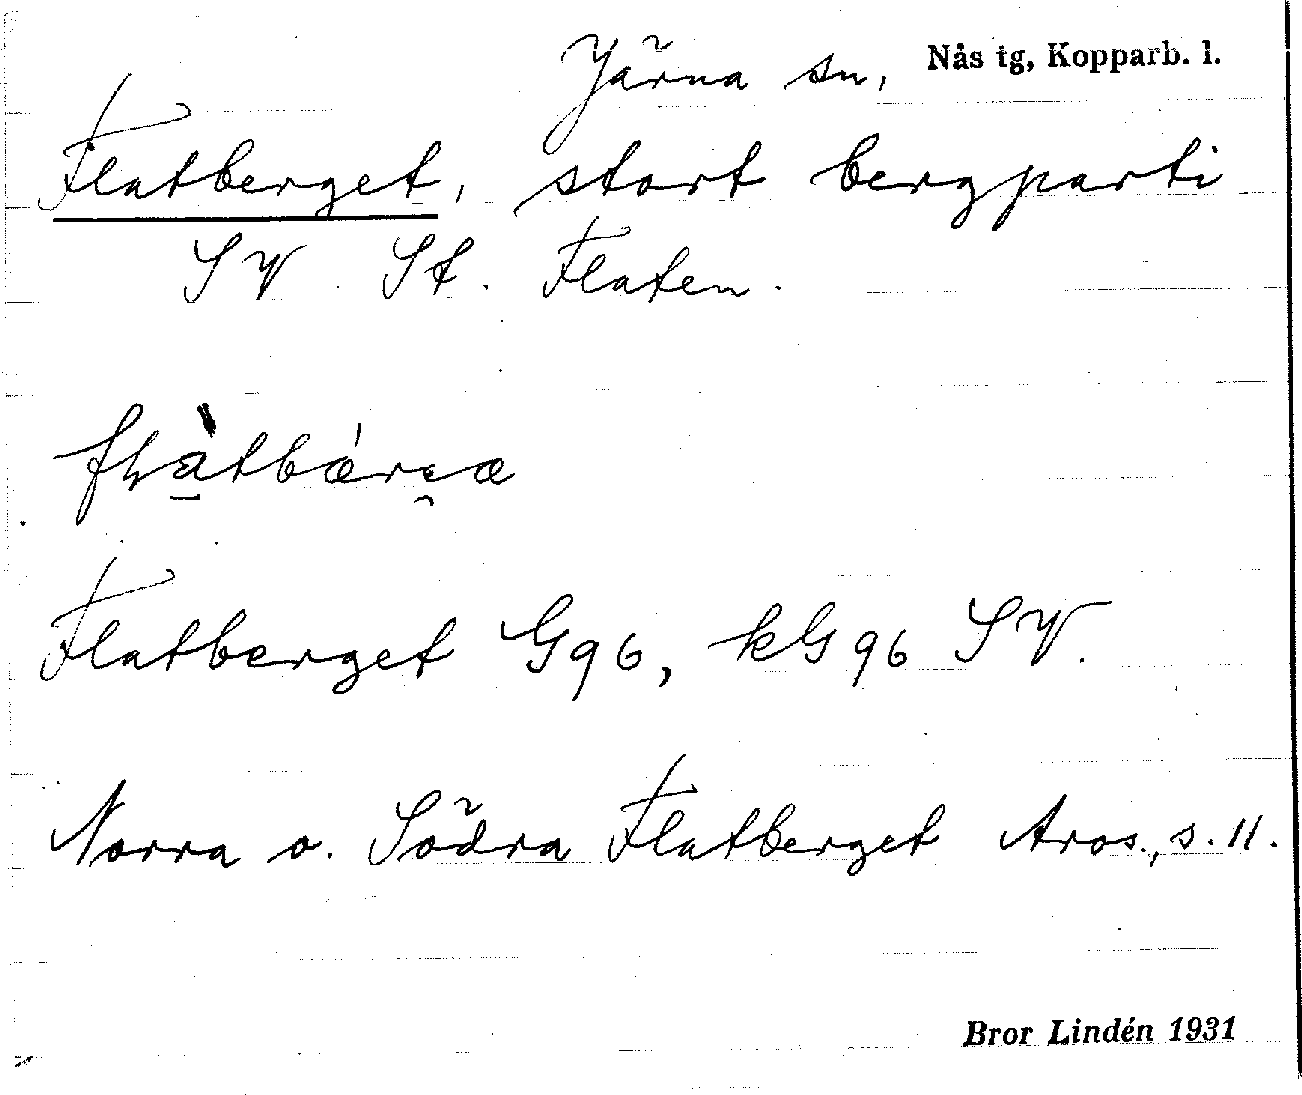 Järna sn, Nås tg, Kopparb. l.
Flatberget, stort bergparti
SV St. Flaten.
Flatberget G96, kG96 SV.
Norra o. Södra Flatberget Aros., s. 11.
Bror Lindén 1931